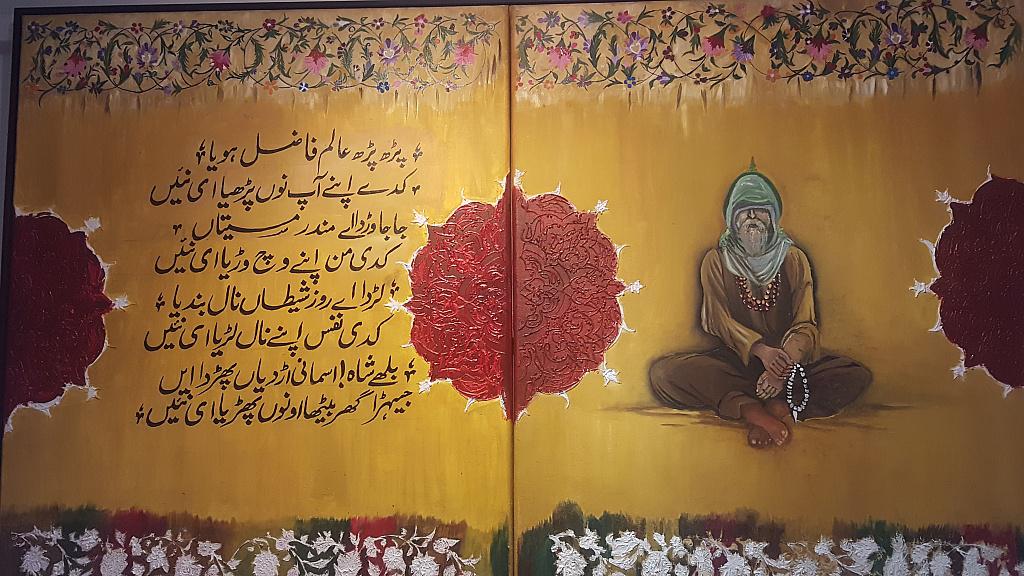 پڑھ پڑھ عالم فاضل ہویا
کدے اپنے آپ نوں پڑھیا ای نئیں
جا جا وڑدا اے مندر مسیتاں
کدی من اپنے وچ وڑیا ای نئیں
لڑدا اے روز شیطاں نال بندیا
کدی نفس اپنے نال لڑیا ای نئیں
بلھے شاہ! اسمانی اڑدیاں پھڑدا ایں
جیہڑا گھر بیٹھا اونوں پھڑیا ای نئیں